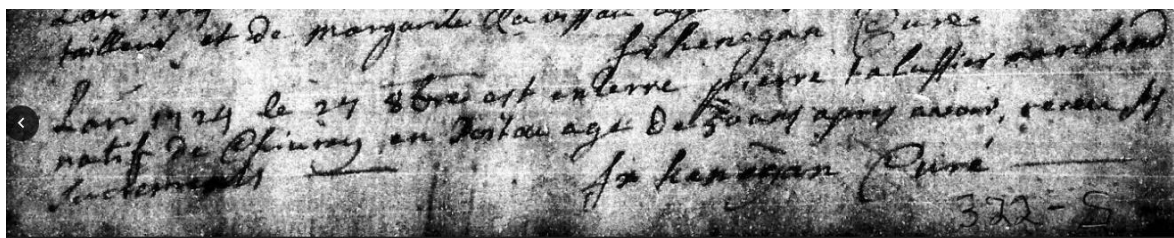 tailleur et de margarite
fr kenegan Curé
Lan 1724 le 27 8bre est enterre pierre taluffier marchand
natif de en poitou age De 30 ans apres avoir receu les
sacrements fr kenegan Curé
322 - S